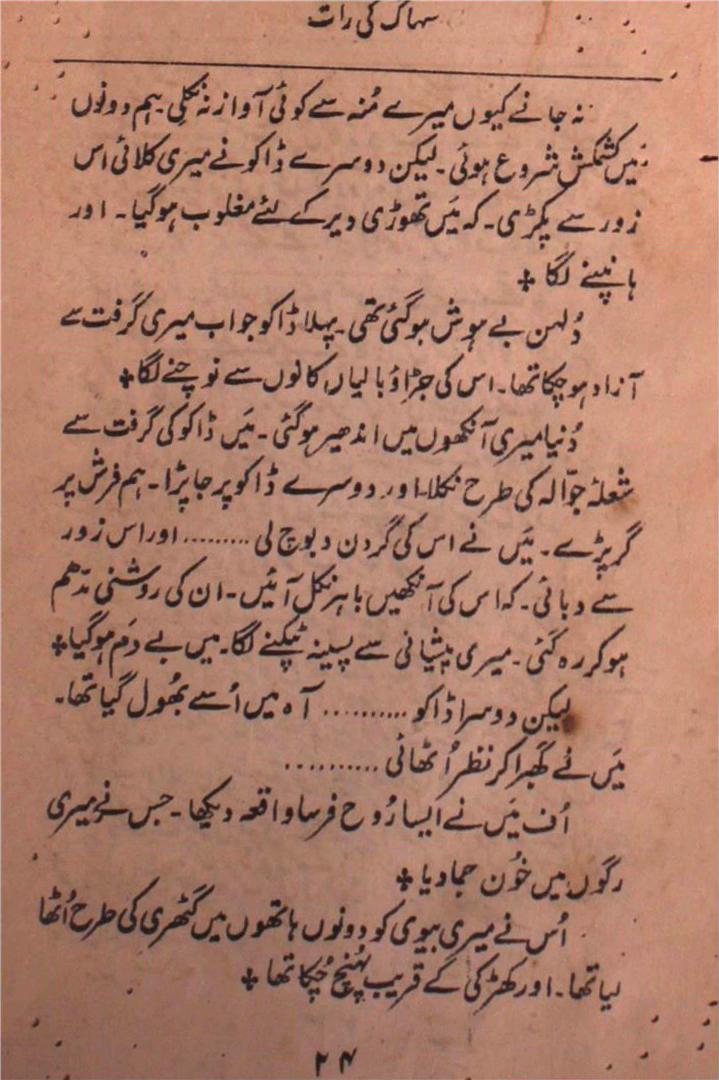 سہاگ کی رات
نہ جانے کیوں میرے مُنہ سے کوئی آواز نہ نکلی۔ ہم دونوں
مَیں کشمکش شروع ہوئی۔ لیکن دوسرے ڈاکو نے میری کلائی اس
زور سے پکڑی۔ کہ مَیں تھوڑی دیر کے لئے مغلوب ہو گیا۔ اور
ہانپنے لگا +
دُلہن بے ہوش ہو گئی تھی۔ پہلا ڈاکو جو اب میری گرفت سے
آزاد ہو چکا تھا۔ اس کی جڑاؤ بالیاں کانوں سے نوچنے لگا +
دُنیا میری آنکھوں میں اندھیر ہو گئی۔ مَیں ڈاکو کی گرفت سے
شعلۂ جوّالہ کی طرح نکلا اور دوسرے ڈاکو پر جا پڑا۔ ہم فرش پر
گر پڑے۔ مَیں نے اس کی گردن دبوچ لی ......... اور اس زور
سے دبائی۔ کہ اس کی آنکھیں باہر نکل آئیں۔ ان کی روشنی مدّھم
ہو کر رہ گئی۔ میری پیشانی سے پسینہ ٹپکنے لگا۔ میں بے دَم ہو گیا +
لیکن دوسرا ڈاکو .......... آہ میں اُسے بھُول گیا تھا۔
مَیں نے گھبرا کر نظر اُٹھائی ..........
اُف مَیں نے ایسا رُوح فرسا واقعہ دیکھا۔ جس نے میری
رگوں میں خُون جما دیا +
اُس نے میری بیوی کو دونوں ہاتھوں میں گٹھری کی طرح اُٹھا
لیا تھا۔ اور کھڑکی کے قریب پہُنچ چُکا تھا +
۲۴